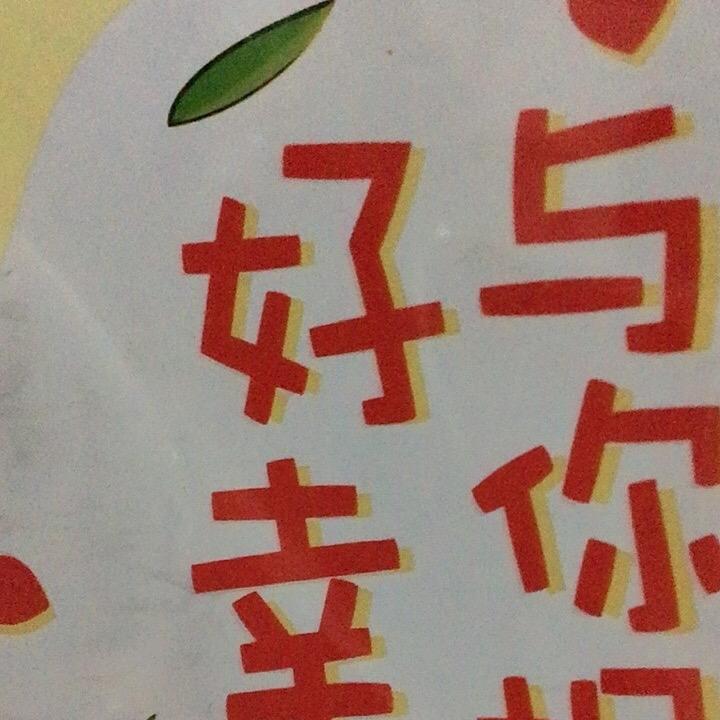 与你
好幸